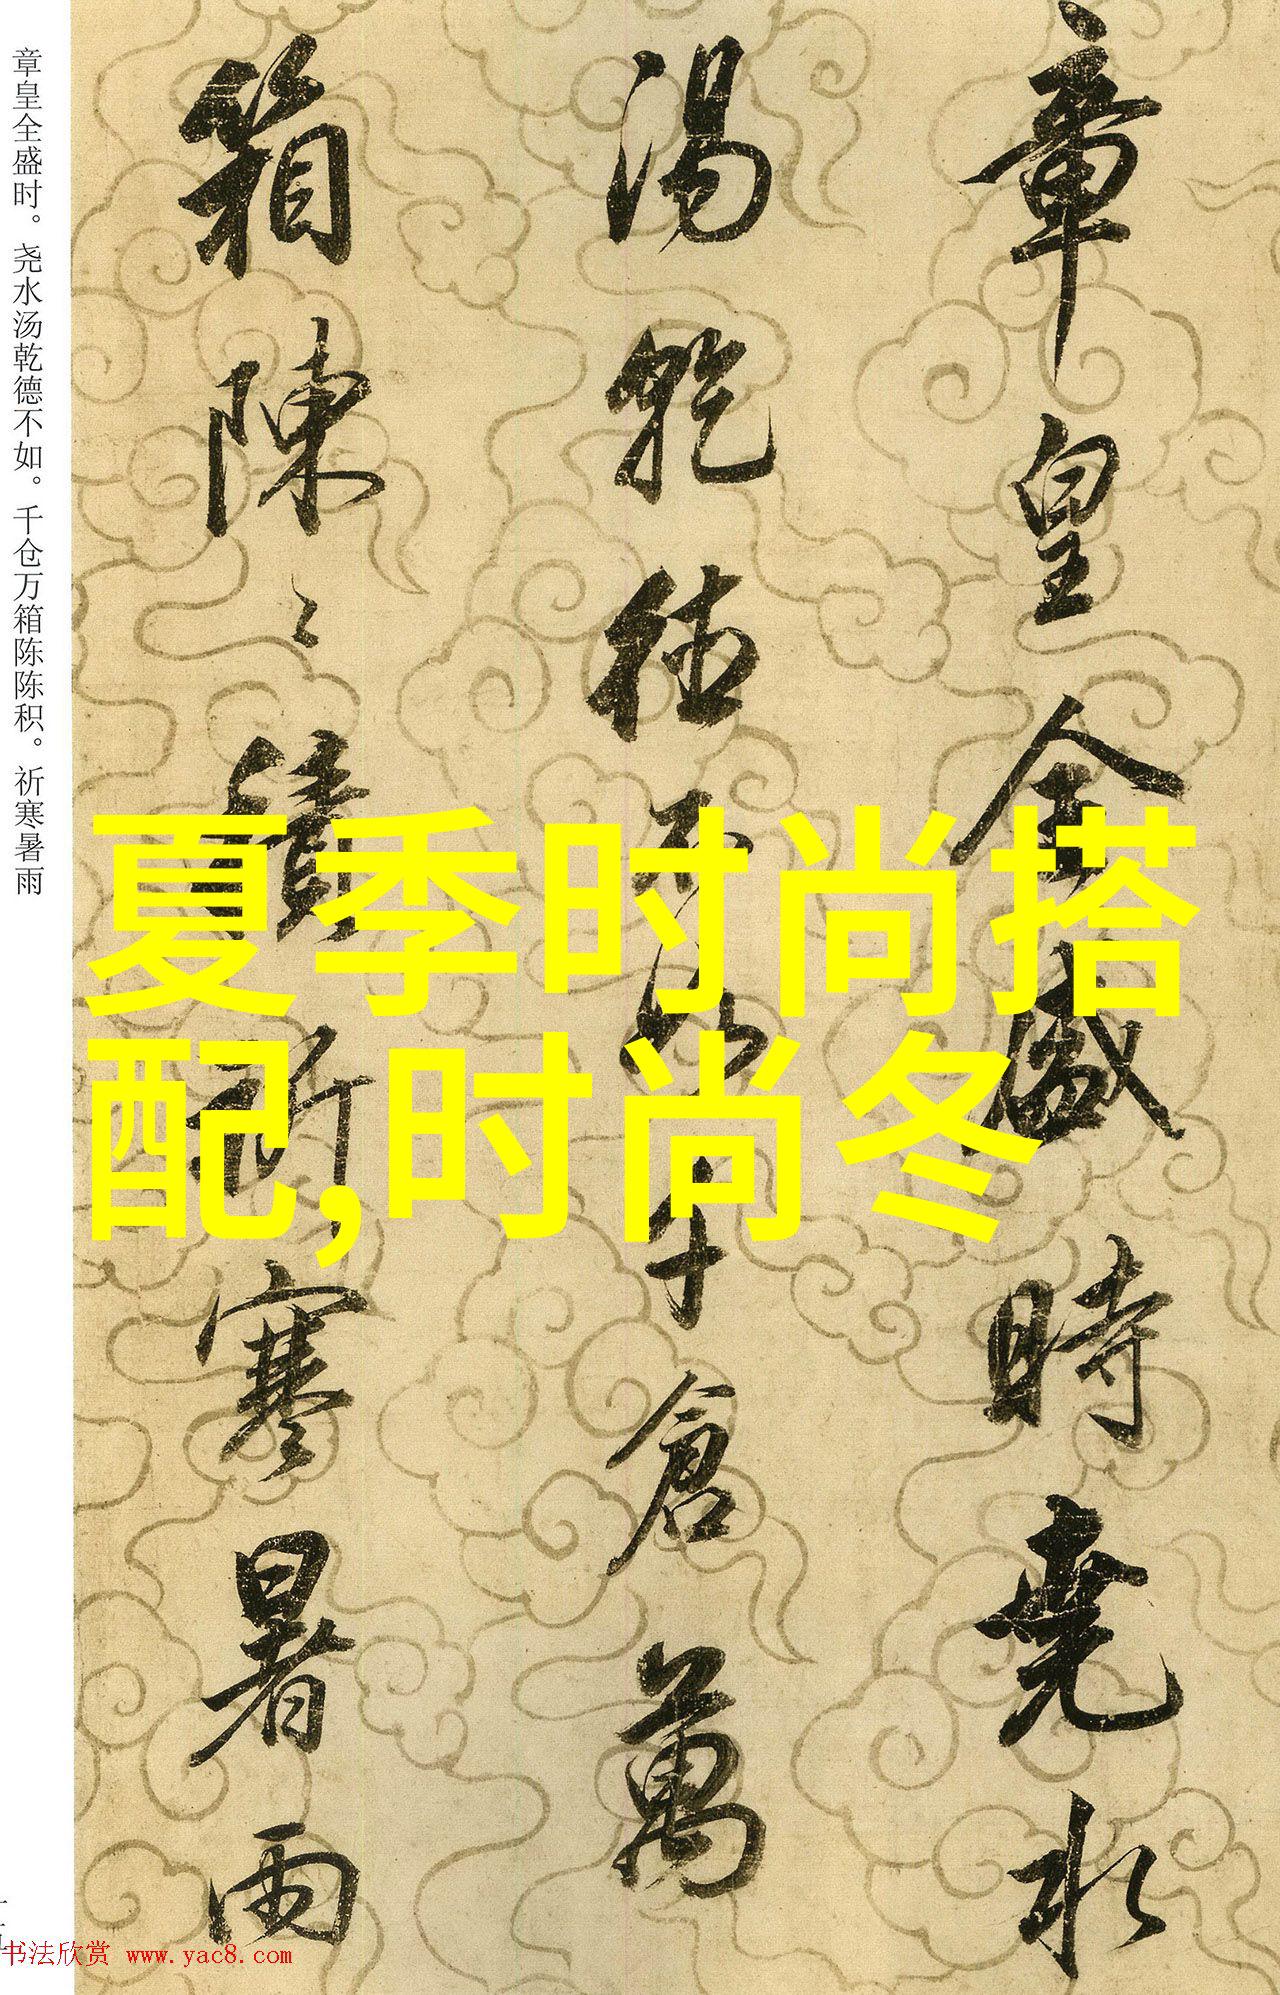 章皇全盛時堯水
湯乾德不如千倉萬
箱陳〻積祈寒暑雨
章皇全盛时。尧水汤乾德不如。千仓万箱陈陈积。祈寒暑雨
夏季时尚搭
配,时尚冬
书法欣赏 www.yac8.com